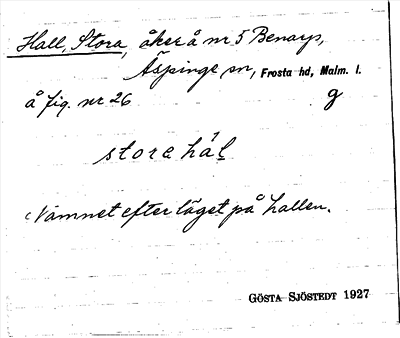 Hall, Stora, åker å nr 5 Benarp,
Äspinge sn, Frosta hd, Malm. l.
å fig. nr 26 g
stora hál
Namnet efter läget på hallen.
GÖSTA SJÖSTEDT 1927